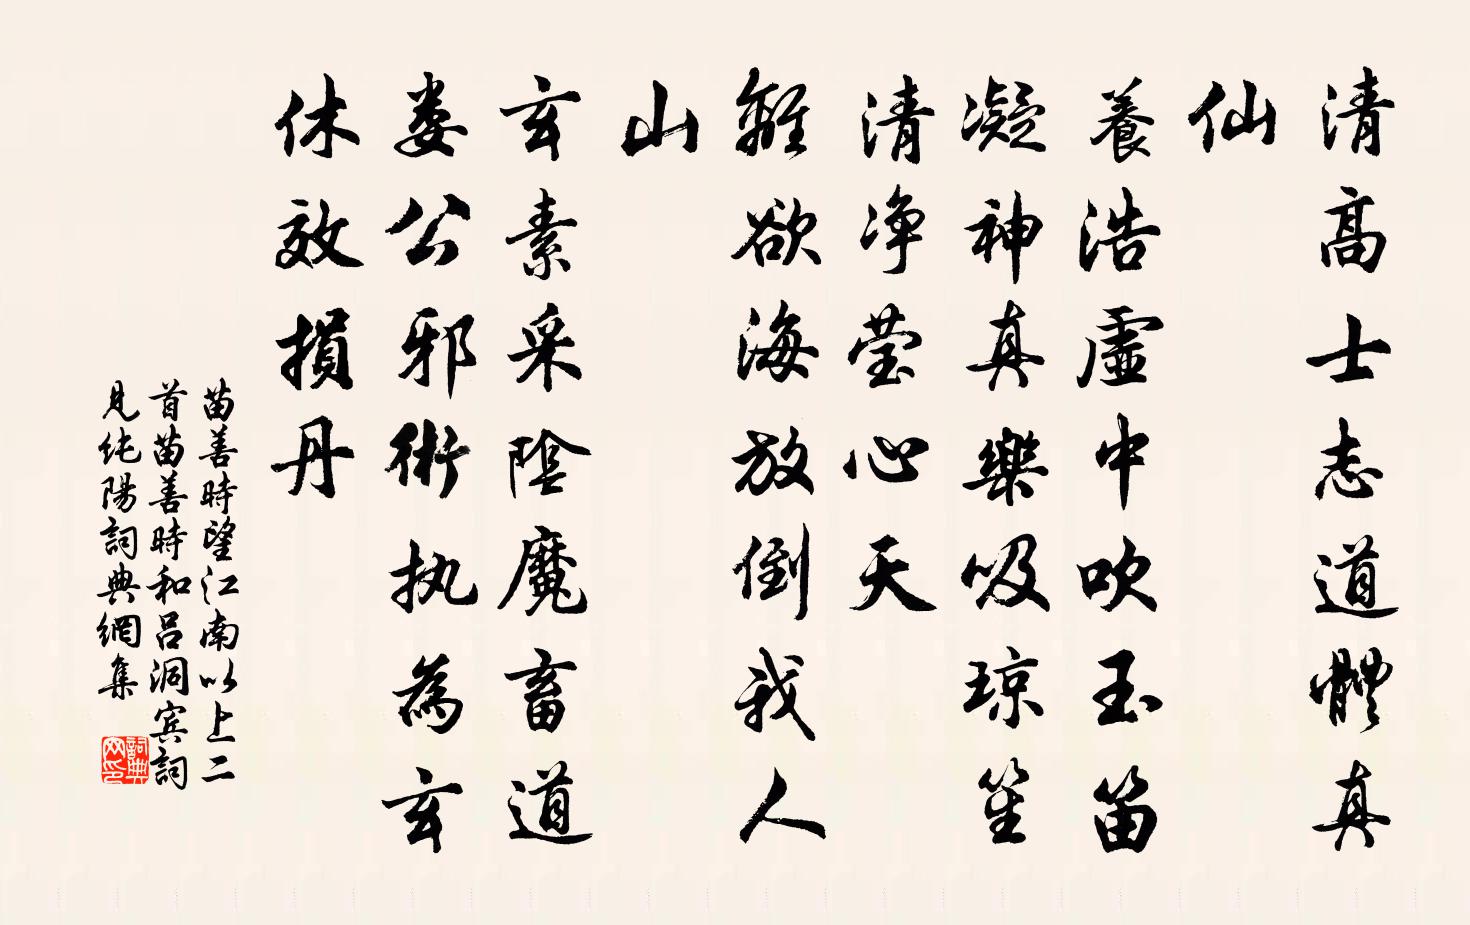 清高士志道體真
仙
養浩虛中吹玉笛
凝神真樂吸琼笙
清净莹心天
離欲海放倒我人
山
玄素采陰魔畜道
娄公邪術执為玄
休效損丹
苗善時望江南以上二
首苗善時和呂洞宾詞
見纯陽詞典網集
詞典
网印